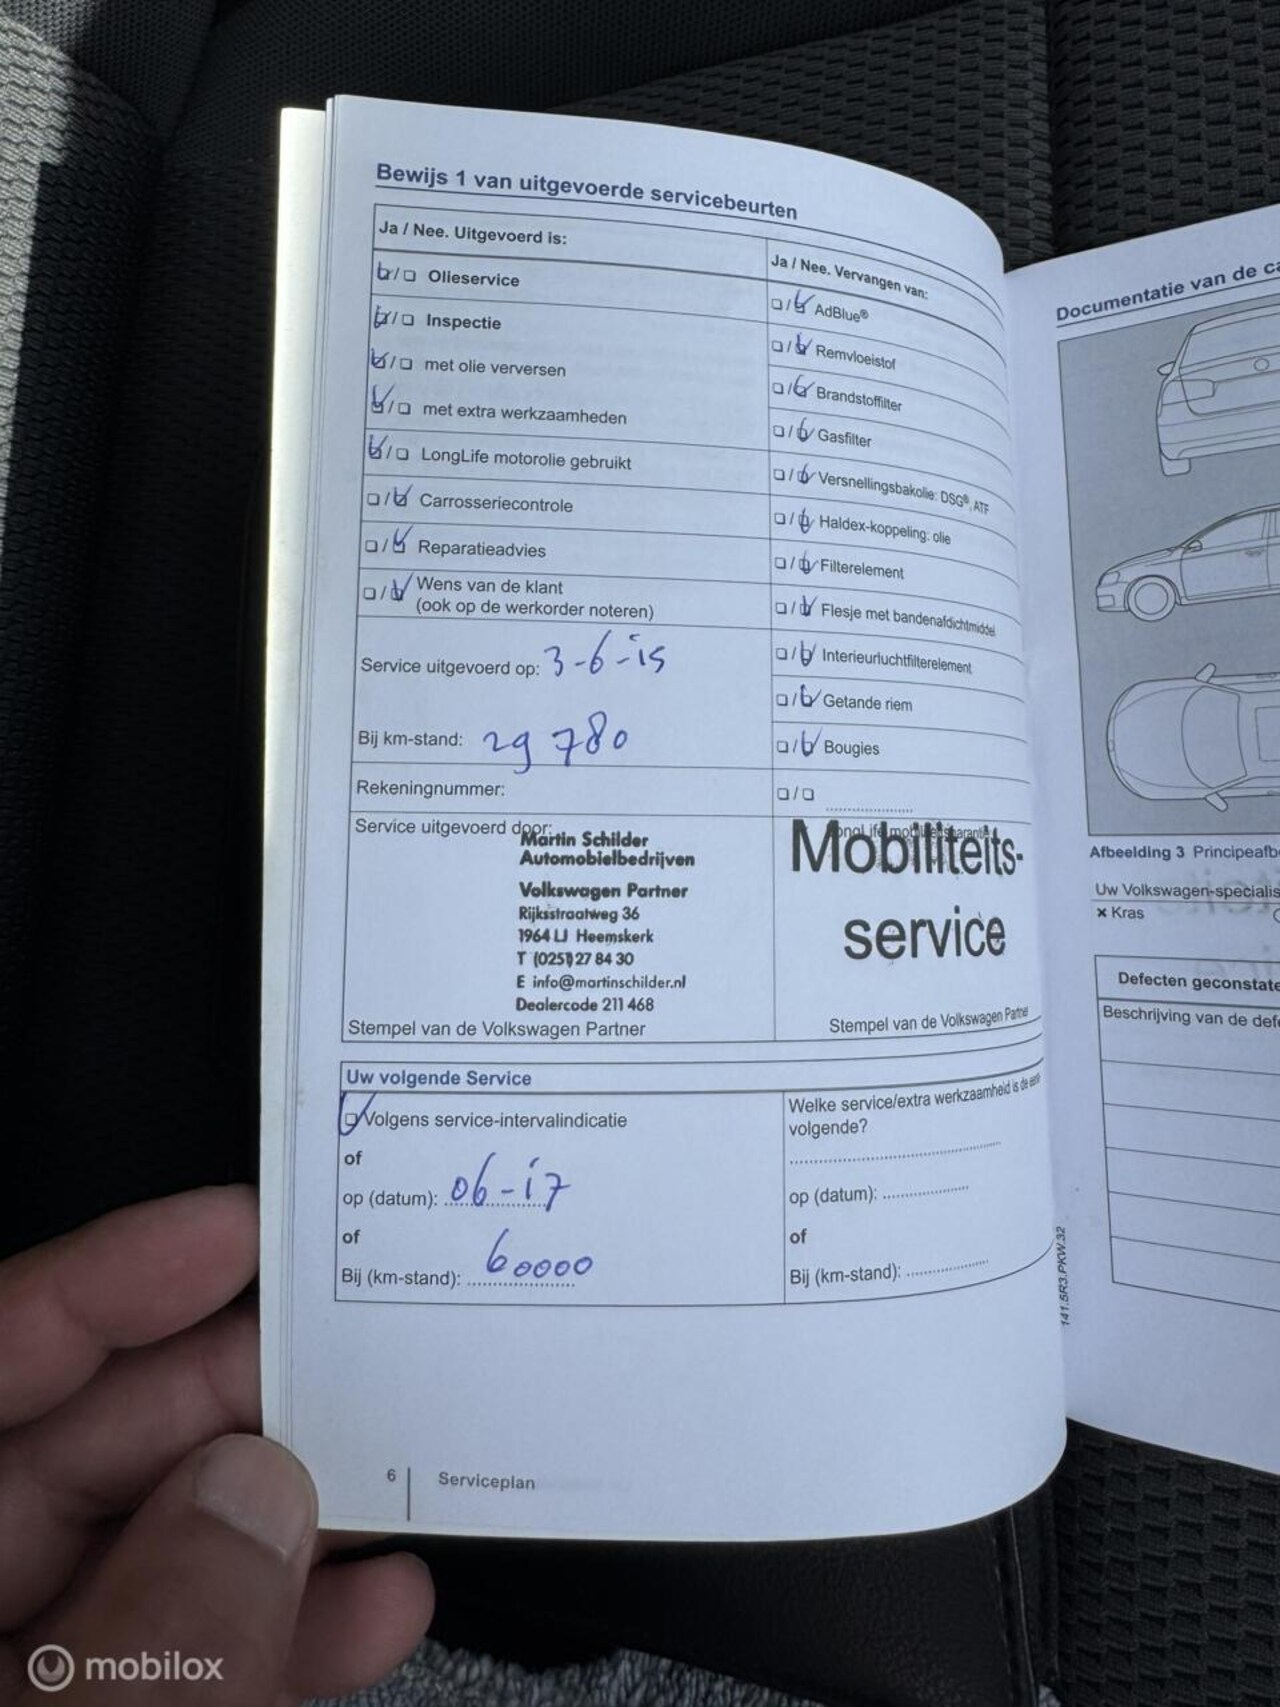 Bewijs 1 van uitgevoerde servicebeurten
Ja / Nee. Uitgevoerd is:
Olieservice
Inspectie
met olie verversen
met extra werkzaamheden
LongLife motorolie gebruikt
Carrosseriecontrole
Reparatieadvies
Wens van de klant
(ook op de werkorder noteren)
Service uitgevoerd op: 3-6-15
Bij km-stand: 29 780
Rekeningnummer:
Service uitgevoerd door:
Martin Schilder
Automobielbedrijven
Volkswagen Partner
Rijksstraatweg 36
1964 LJ Heemskerk
T (0251) 27 84 30
E info@martinschilder.nl
Dealercode 211 468
Stempel van de Volkswagen Partner
Ja / Nee. Vervangen van:
AdBlue®
Remvloeistof
Brandstoffilter
Gasfilter
Versnellingsbakolie: DSG®, ATF
Haldex-koppeling: olie
Filterelement
Flesje met bandenafdichtmiddel
Interieurluchtfilterelement
Getande riem
Bougies
Mobiliteits-
service
Stempel van de Volkswagen Partner
Uw volgende Service
Volgens service-intervalindicatie
of
op (datum): 06-17
of
Bij (km-stand): 60000
Welke service/extra werkzaamheid is de eerst
volgende?
op (datum):
of
Bij (km-stand):
141.5R3.PKW.32
6 Serviceplan
Documentatie van de ca
Afbeelding 3 Principeafb
Uw Volkswagen-specialis
× Kras
Defecten geconstate
Beschrijving van de defe
mobilox